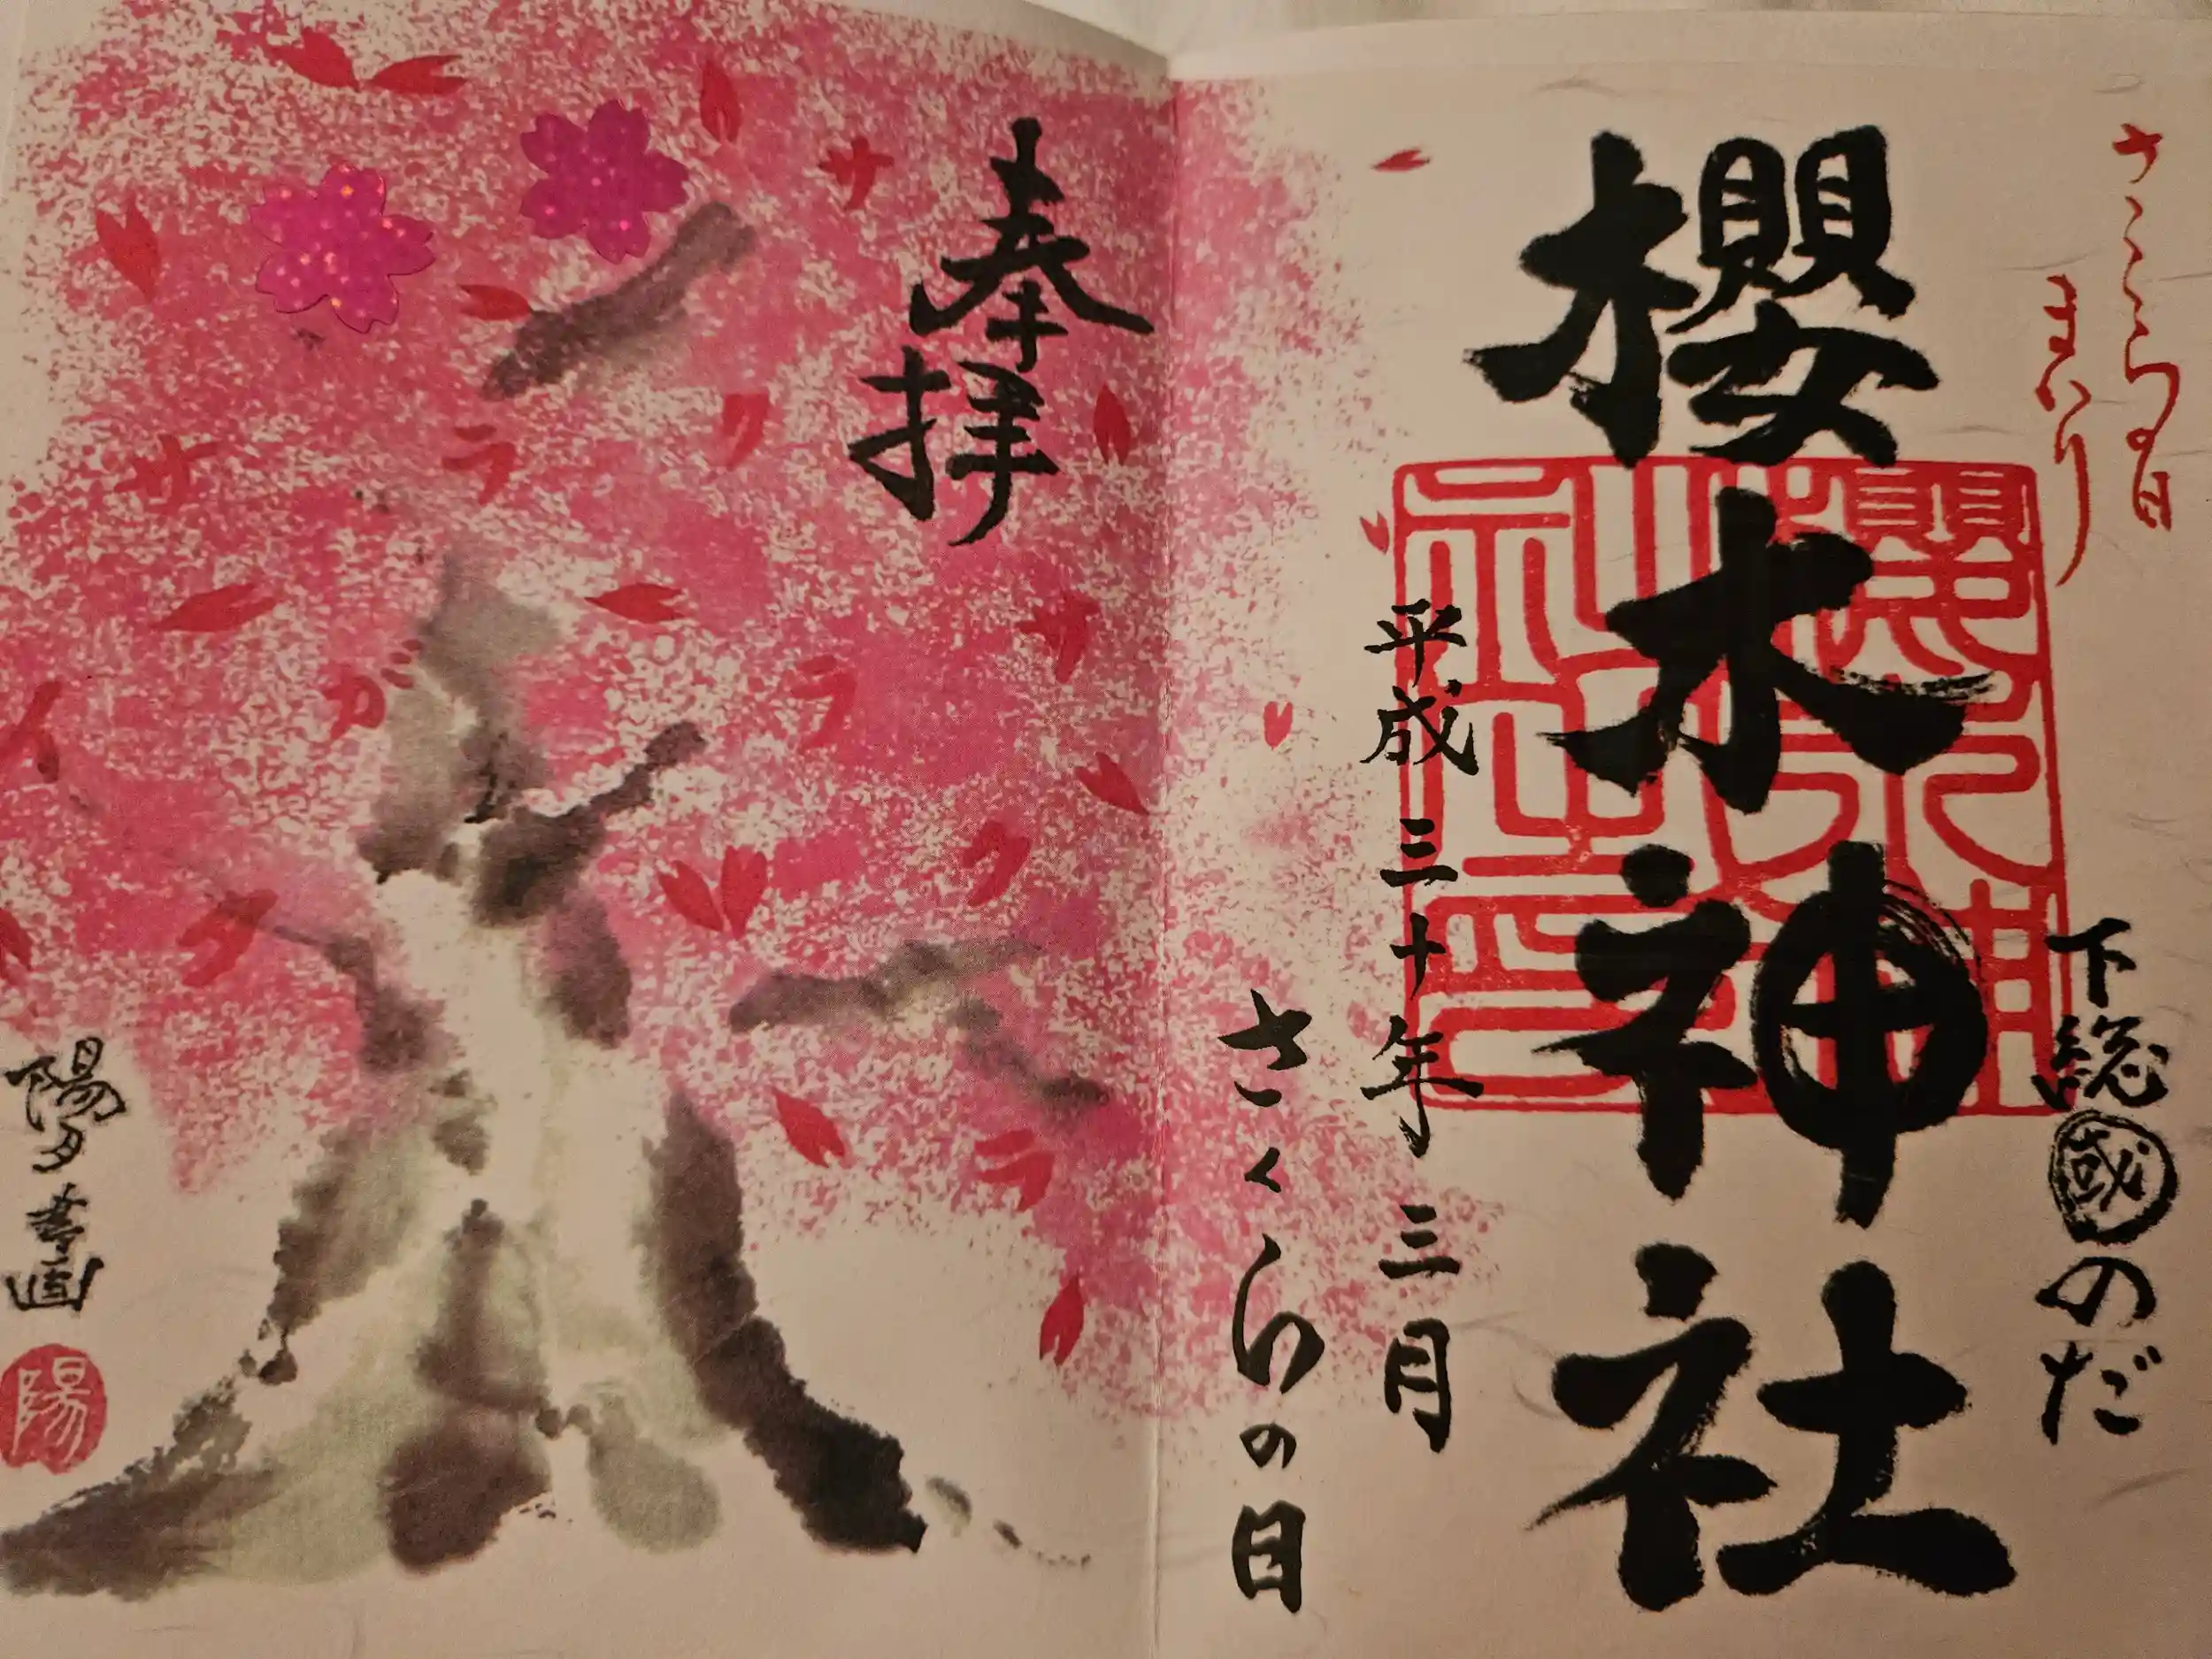 さくらの日
まいり
下総國のだ
櫻木神社
櫻木神社之印
平成三十年三月
さくらの日
奉拝
サクラ
サクラガサイタ
陽